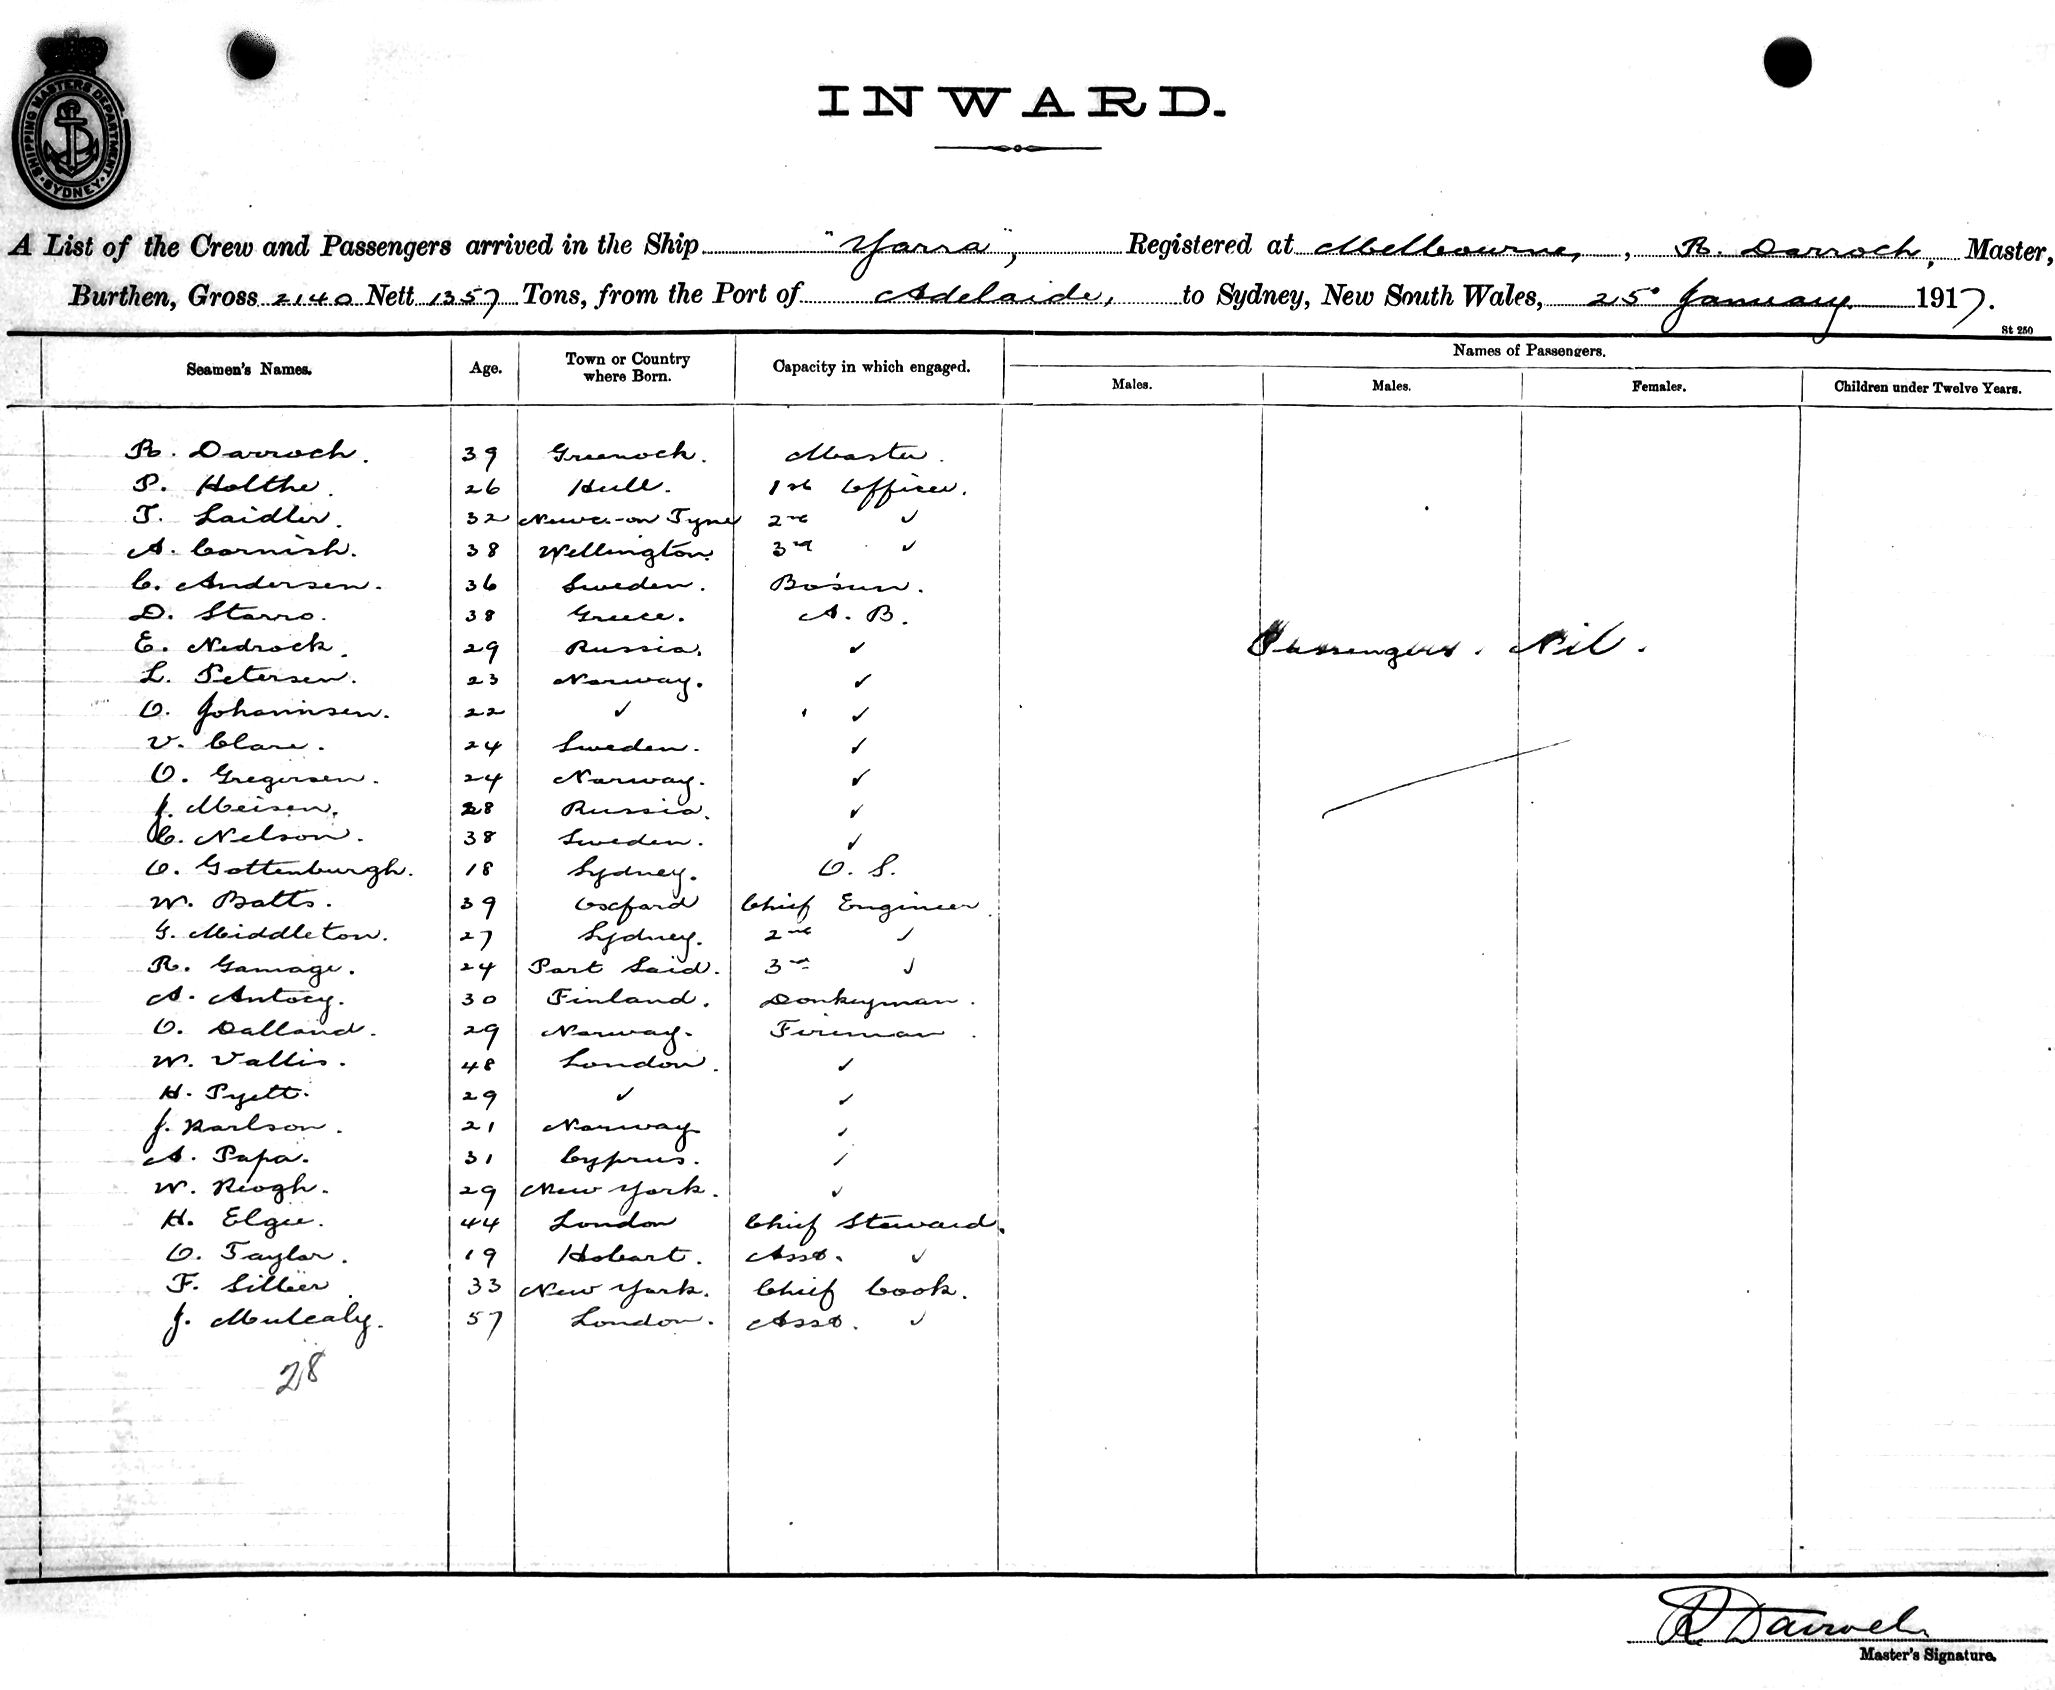 SHIPPING MASTERS DEPARTMENT
SYDNEY
INWARD.
A List of the Crew and Passengers arrived in the Ship "Yarra", Registered at Melbourne, , R. Darroch, Master,
Burthen, Gross 2140 Nett 1357 Tons, from the Port of Adelaide, to Sydney, New South Wales, 25 January 1917.
St 250
Seamen's Names. Age. Town or Country where Born. Capacity in which engaged. Names of Passengers.
Males. Males. Females. Children under Twelve Years.
R. Darroch. 39 Greenock. Master.
P. Holthe. 26 Hull. 1st Officer.
T. Laidler. 32 Newc.-on Tyne 2nd ✓
A. Cornish. 38 Wellington. 3rd ✓
C. Andersen. 36 Sweden. Bo'sun.
D. Starro. 38 Greece. A. B.
E. Nedrock. 29 Russia. ✓
Passengers. Nil.
L. Petersen. 23 Norway. ✓
O. Johannsen. 22 ✓ ✓
V. Clare. 24 Sweden. ✓
O. Gregersen. 24 Norway. ✓
J. Meisen. 28 Russia. ✓
C. Nelson. 38 Sweden. ✓
O. Gottenburgh. 18 Sydney. O. S.
W. Batts. 39 Oxford Chief Engineer.
G. Middleton. 27 Sydney. 2nd ✓
R. Gamage. 24 Port Said. 3rd ✓
A. Antocy. 30 Finland. Donkeyman.
O. Dalland. 29 Norway. Fireman.
W. Vallis. 48 London. ✓
H. Pyett. 29 ✓ ✓
J. Karlson. 21 Norway ✓
A. Papa. 31 Cyprus. ✓
W. Keogh. 29 New York. ✓
H. Elgie. 44 London Chief Steward.
O. Taylor. 19 Hobart. Asst. ✓
F. 33 New York. Chief Cook.
J. Mulcahy. 57 London. Asst. ✓
28
R Darroch
Master's Signature.